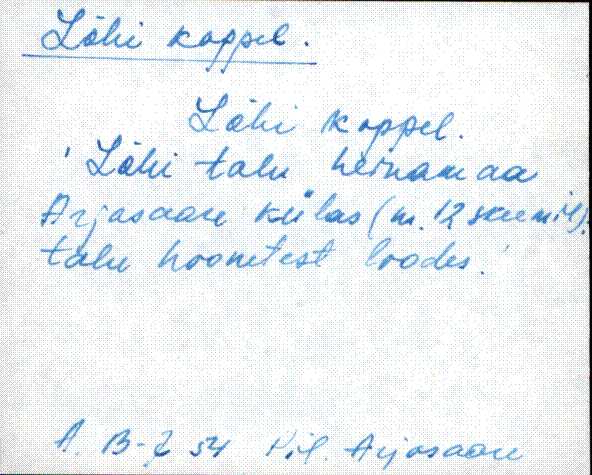 Lõhi koppel.
Lõhi koppel.
' Lõhi talu heinamaa
Arjasaare külas (m. 12
talu hoonetest loodes.'
A. B-Z 54 Vil. Arjasaare